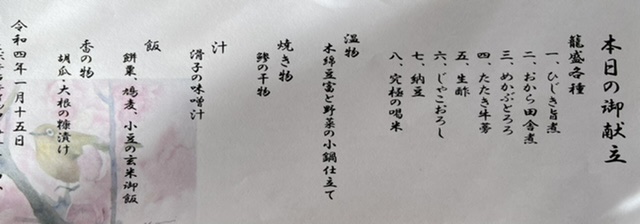 本日の御献立
籠盛各種
一、ひじき旨煮
二、おから田舎煮
三、めかぶとろろ
四、たたき牛蒡
五、生酢
六、じゃこおろし
七、納豆
八、究極の喝米
温物
木綿豆富と野菜の小鍋仕立て
焼き物
鯵の干物
汁
滑子の味噌汁
飯
餅粟、鳩麦、小豆の玄米御飯
香の物
胡瓜・大根の糠漬け
令和四年一月十五日